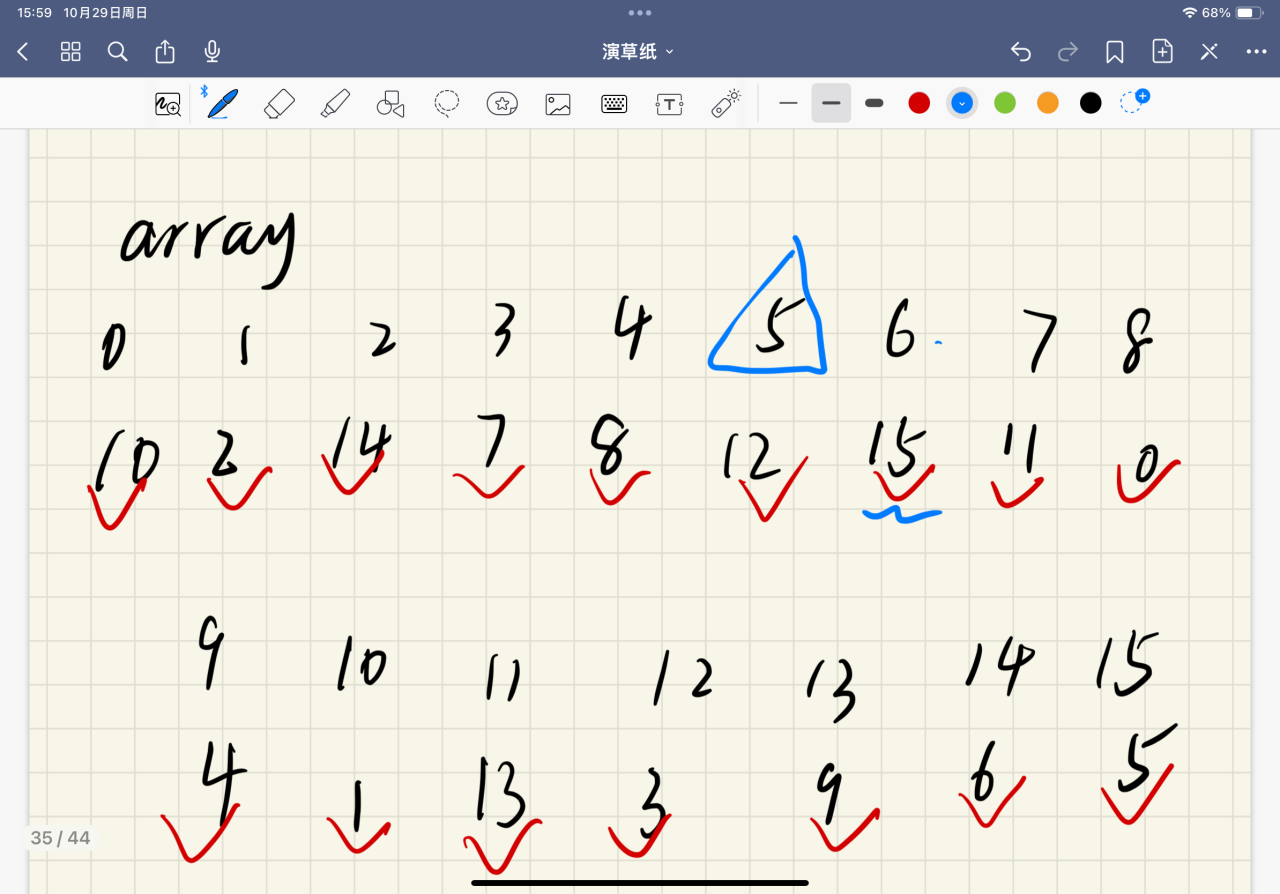 15:59 10月29日周日
68%
演草纸
T
array
0 1 2 3 4 5 6 7 8
10 2 14 7 8 12 15 11 0
9 10 11 12 13 14 15
4 1 13 3 9 6 5
35 / 44